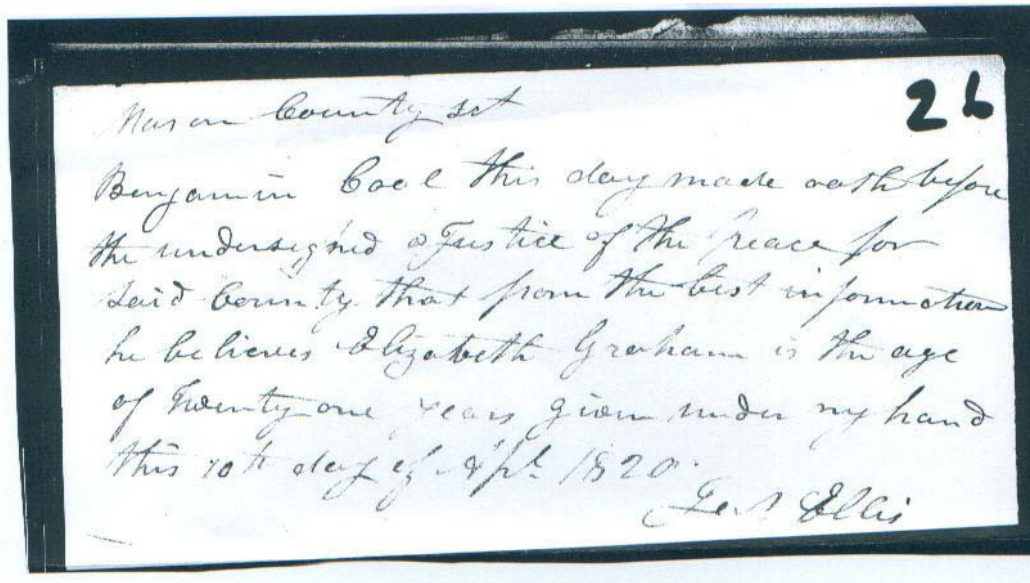 2b
Mason County sct
Benjamin Cool this day made oath before
the undersigned a Justice of the peace for
said County that from the best information
he believes Elizabeth Graham is the age
of Twenty one years given under my hand
this 10th day of Apl 1820
Ellis